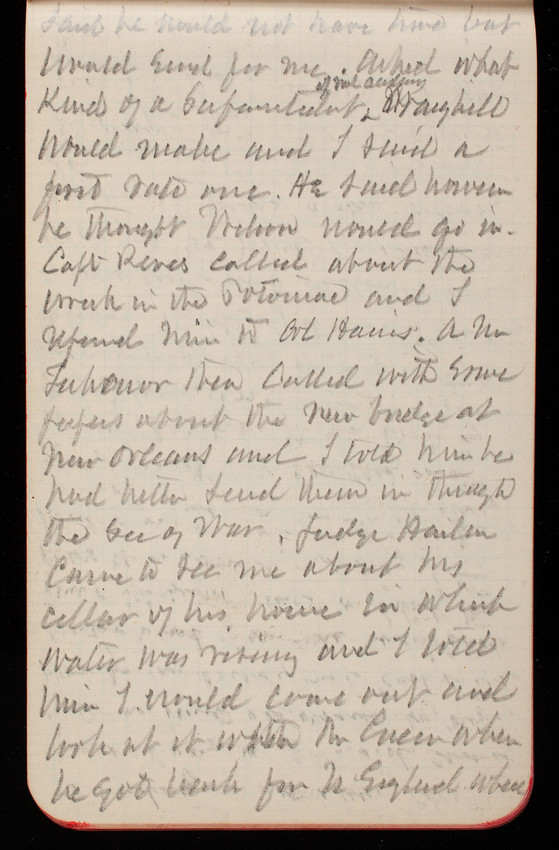 said he would not have time but
would send for me. Asked what
Kind of a Superintendent of Mil academy
would make and I said a
first rate one. He said however
he thought Wilson would go in.
Capt Reves called about the
wreck in the Potomac and I
referred him to Col Hains. A Mr
then called with some
papers about the New bridge at
New Orleans and I told him he
had better send them in through
the Sec of War. Judge Harlan
came to see me about his
cellar of his house in which
water was rising and I told
him I would come out and
look at it with Mr when
he got back from N England where